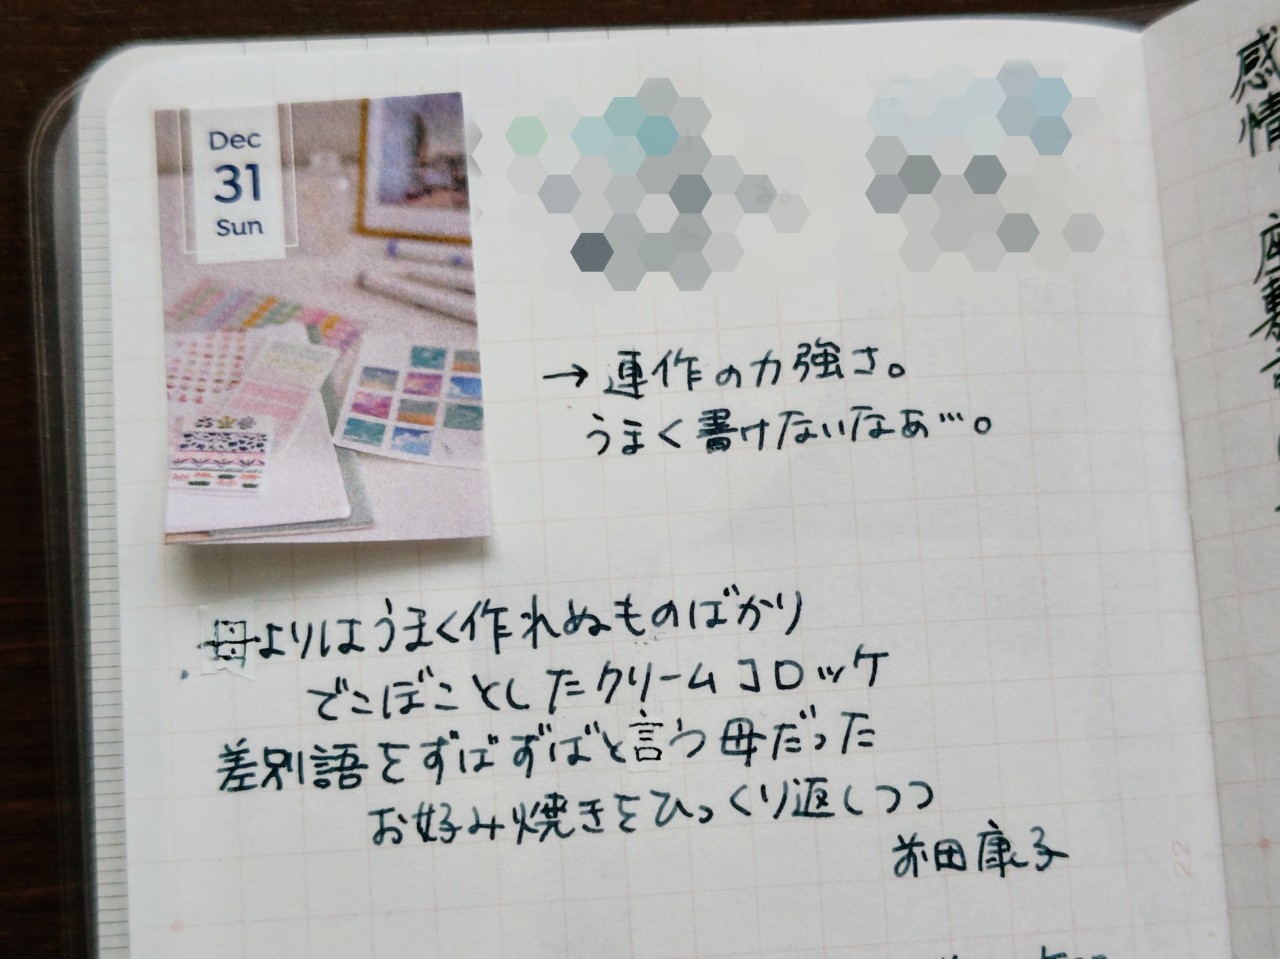 Dec
31
Sun
→ 連作の力強さ。
うまく書けないなあ…。
母よりはうまく作れぬものばかり
でこぼことしたクリームコロッケ
差別語をずばずばと言う母だった
お好み焼きをひっくり返しつつ
前田康子
感情
座裏
22